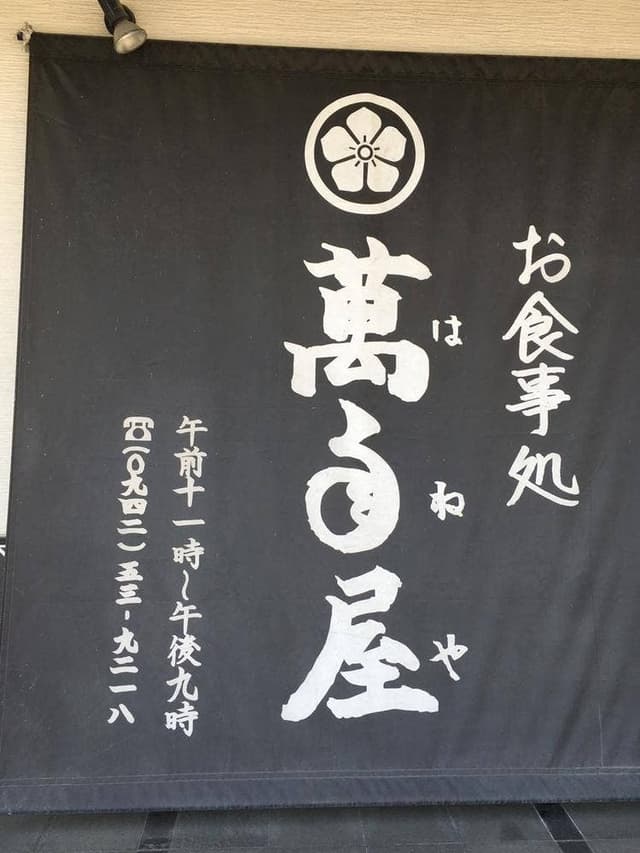 お食事処
萬年屋
はねや
午前十一時～午後九時
☎(〇九四二)五三-九二一八